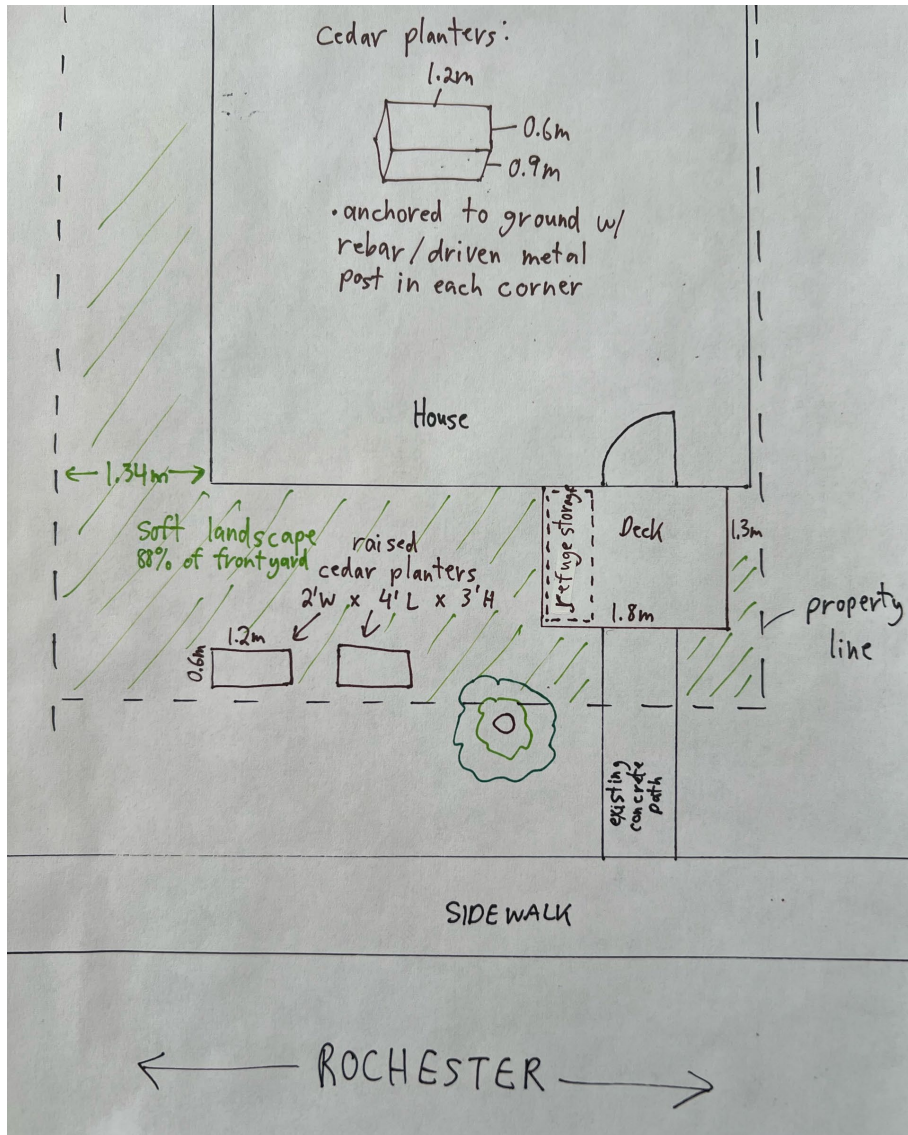 Cedar planters:
1.2m
0.6m
0.9m
•anchored to ground w/
rebar/driven metal
post in each corner
House
1.34m
Soft landscape
88% of frontyard
raised
cedar planters
2'W x 4'L x 3'H
1.2m
0.6m
refuge storage
Deck
1.3m
1.8m
property
line
existing
concrete
path
SIDEWALK
ROCHESTER